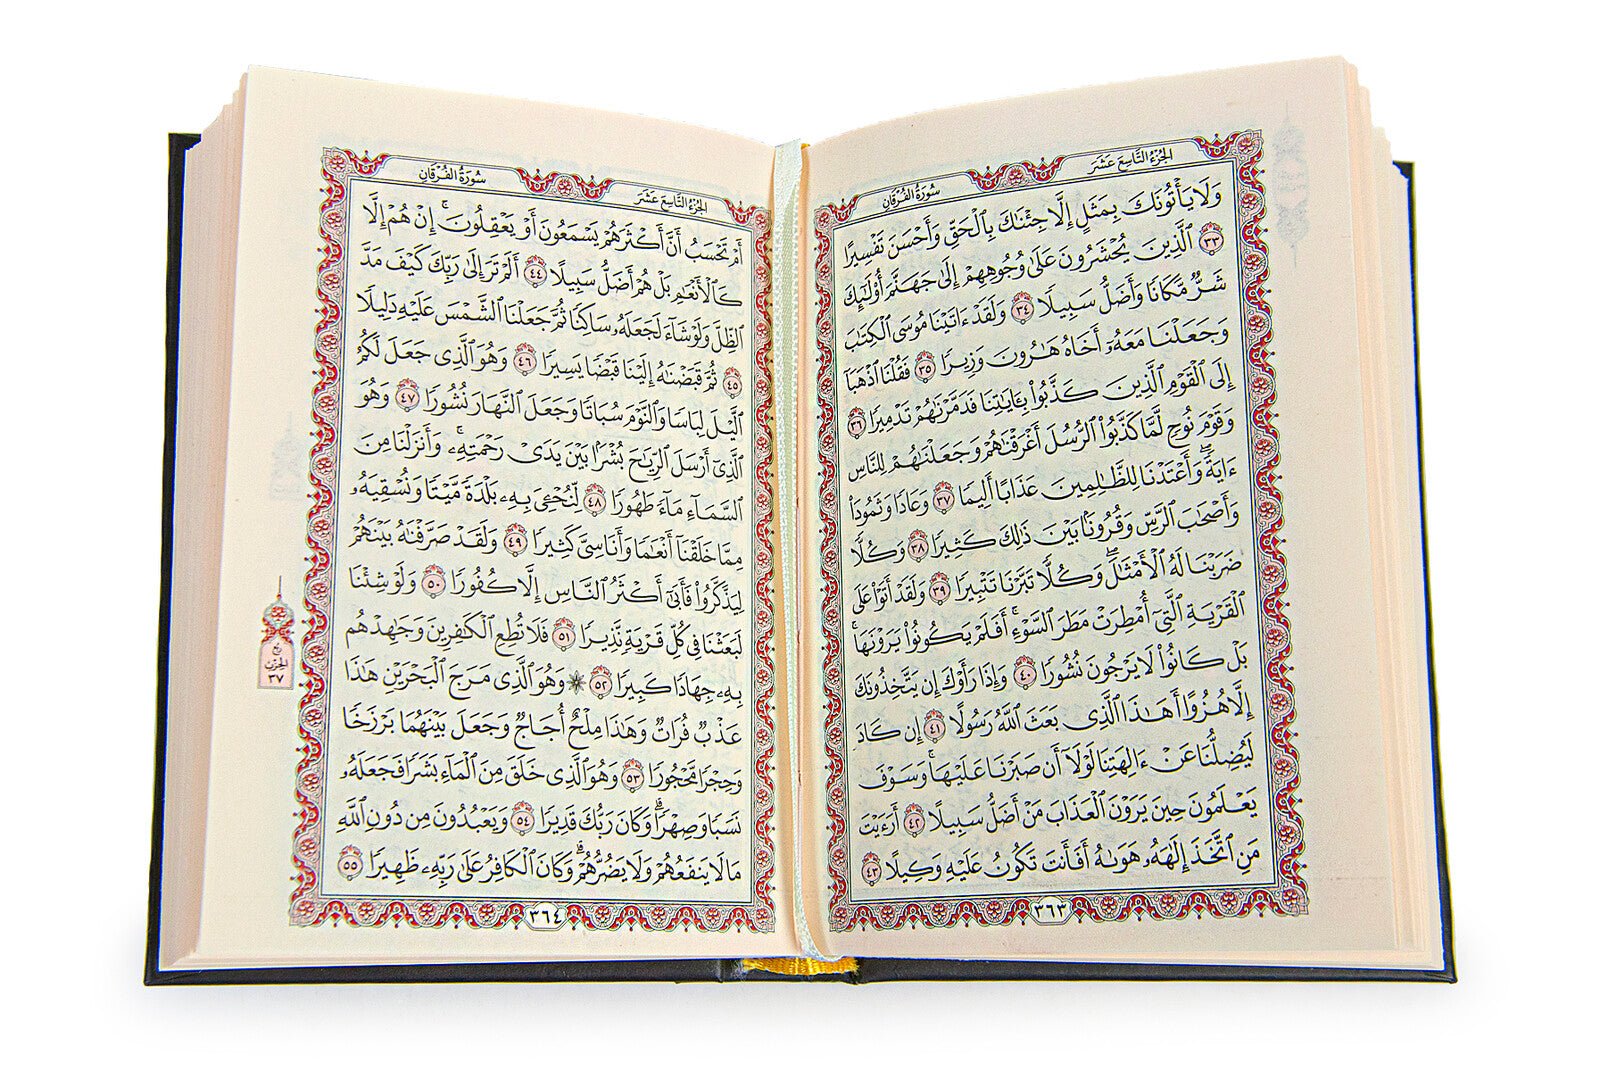 الجزء التاسع عشر
سورة الفرقان
وَلَا يَأْتُونَكَ بِمَثَلٍ إِلَّا جِئْنَٰكَ بِٱلْحَقِّ وَأَحْسَنَ تَفْسِيرًا
٣٣ ٱلَّذِينَ يُحْشَرُونَ عَلَىٰ وُجُوهِهِمْ إِلَىٰ جَهَنَّمَ أُوْلَٰٓئِكَ
شَرٌّ مَّكَانًا وَأَضَلُّ سَبِيلًا ٣٤ وَلَقَدْ ءَاتَيْنَا مُوسَى ٱلْكِتَٰبَ
وَجَعَلْنَا مَعَهُۥٓ أَخَاهُ هَٰرُونَ وَزِيرًا ٣٥ فَقُلْنَا ٱذْهَبَآ
إِلَى ٱلْقَوْمِ ٱلَّذِينَ كَذَّبُوا۟ بِـَٔايَٰتِنَا فَدَمَّرْنَٰهُمْ تَدْمِيرًا ٣٦
وَقَوْمَ نُوحٍ لَّمَّا كَذَّبُوا۟ ٱلرُّسُلَ أَغْرَقْنَٰهُمْ وَجَعَلْنَٰهُمْ لِلنَّاسِ
ءَايَةً ۖ وَأَعْتَدْنَا لِلظَّٰلِمِينَ عَذَابًا أَلِيمًا ٣٧ وَعَادًا وَثَمُودَا۟
وَأَصْحَٰبَ ٱلرَّسِّ وَقُرُونًۢا بَيْنَ ذَٰلِكَ كَثِيرًا ٣٨ وَكُلًّا
ضَرَبْنَا لَهُ ٱلْأَمْثَٰلَ ۖ وَكُلًّا تَبَّرْنَا تَتْبِيرًا ٣٩ وَلَقَدْ أَتَوْا۟ عَلَى
ٱلْقَرْيَةِ ٱلَّتِىٓ أُمْطِرَتْ مَطَرَ ٱلسَّوْءِ ۚ أَفَلَمْ يَكُونُوا۟ يَرَوْنَهَا ۚ
بَلْ كَانُوا۟ لَا يَرْجُونَ نُشُورًا ٤٠ وَإِذَا رَأَوْكَ إِن يَتَّخِذُونَكَ
إِلَّا هُزُوًا أَهَٰذَا ٱلَّذِى بَعَثَ ٱللَّهُ رَسُولًا ٤١ إِن كَادَ
لَيُضِلُّنَا عَنْ ءَالِهَتِنَا لَوْلَآ أَن صَبَرْنَا عَلَيْهَا ۚ وَسَوْفَ
يَعْلَمُونَ حِينَ يَرَوْنَ ٱلْعَذَابَ مَنْ أَضَلُّ سَبِيلًا ٤٢ أَرَءَيْتَ
مَنِ ٱتَّخَذَ إِلَٰهَهُۥ هَوَىٰهُ أَفَأَنتَ تَكُونُ عَلَيْهِ وَكِيلًا ٤٣
٣٦٣
الجزء التاسع عشر
سورة الفرقان
أَمْ تَحْسَبُ أَنَّ أَكْثَرَهُمْ يَسْمَعُونَ أَوْ يَعْقِلُونَ ۚ إِنْ هُمْ إِلَّا
كَٱلْأَنْعَٰمِ بَلْ هُمْ أَضَلُّ سَبِيلًا ٤٤ أَلَمْ تَرَ إِلَىٰ رَبِّكَ كَيْفَ مَدَّ
ٱلظِّلَّ وَلَوْ شَآءَ لَجَعَلَهُۥ سَاكِنًا ثُمَّ جَعَلْنَا ٱلشَّمْسَ عَلَيْهِ دَلِيلًا
٤٥ ثُمَّ قَبَضْنَٰهُ إِلَيْنَا قَبْضًا يَسِيرًا ٤٦ وَهُوَ ٱلَّذِى جَعَلَ لَكُمُ
ٱلَّيْلَ لِبَاسًا وَٱلنَّوْمَ سُبَاتًا وَجَعَلَ ٱلنَّهَارَ نُشُورًا ٤٧ وَهُوَ
ٱلَّذِىٓ أَرْسَلَ ٱلرِّيَٰحَ بُشْرًۢا بَيْنَ يَدَىْ رَحْمَتِهِۦ ۚ وَأَنزَلْنَا مِنَ
ٱلسَّمَآءِ مَآءً طَهُورًا ٤٨ لِّنُحْـِۧىَ بِهِۦ بَلْدَةً مَّيْتًا وَنُسْقِيَهُۥ
مِمَّا خَلَقْنَآ أَنْعَٰمًا وَأَنَاسِىَّ كَثِيرًا ٤٩ وَلَقَدْ صَرَّفْنَٰهُ بَيْنَهُمْ
لِيَذَّكَّرُوا۟ فَأَبَىٰٓ أَكْثَرُ ٱلنَّاسِ إِلَّا كُفُورًا ٥٠ وَلَوْ شِئْنَا
لَبَعَثْنَا فِى كُلِّ قَرْيَةٍ نَّذِيرًا ٥١ فَلَا تُطِعِ ٱلْكَٰفِرِينَ وَجَٰهِدْهُم
بِهِۦ جِهَادًا كَبِيرًا ٥٢ ۞ وَهُوَ ٱلَّذِى مَرَجَ ٱلْبَحْرَيْنِ هَٰذَا
عَذْبٌ فُرَاتٌ وَهَٰذَا مِلْحٌ أُجَاجٌ وَجَعَلَ بَيْنَهُمَا بَرْزَخًا
وَحِجْرًا مَّحْجُورًا ٥٣ وَهُوَ ٱلَّذِى خَلَقَ مِنَ ٱلْمَآءِ بَشَرًا فَجَعَلَهُۥ
نَسَبًا وَصِهْرًا ۗ وَكَانَ رَبُّكَ قَدِيرًا ٥٤ وَيَعْبُدُونَ مِن دُونِ ٱللَّهِ
مَا لَا يَنفَعُهُمْ وَلَا يَضُرُّهُمْ ۗ وَكَانَ ٱلْكَافِرُ عَلَىٰ رَبِّهِۦ ظَهِيرًا ٥٥
٣٦٤
ربع
الحزب
٣٧